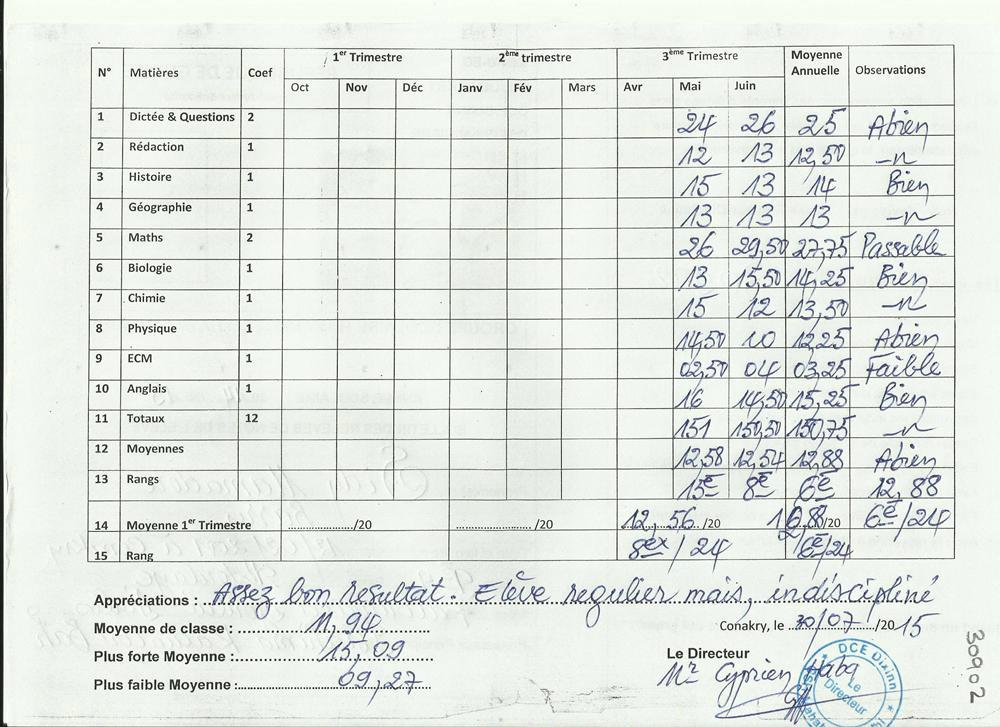 N° Matières Coef 1er Trimestre 2ème trimestre 3ème Trimestre Moyenne Annuelle Observations
Oct Nov Déc Janv Fév Mars Avr Mai Juin
1 Dictée & Questions 2 24 26 25 Abien
2 Rédaction 1 12 13 12,50 -n-
3 Histoire 1 15 13 14 Bien
4 Géographie 1 13 13 13 -n-
5 Maths 2 26 29,50 27,75 Passable
6 Biologie 1 13 15,50 14,25 Bien
7 Chimie 1 15 12 13,50 -n-
8 Physique 1 14,50 10 12,25 Abien
9 ECM 1 02,50 04 03,25 Faible
10 Anglais 1 16 14,50 15,25 Bien
11 Totaux 12 151 150,50 150,75 -n-
12 Moyennes 12,58 12,54 12,88 Abien
13 Rangs 13e 8e 6e 12,88
14 Moyenne 1er Trimestre ................/20 ................/20 12,56 /20 /20 6e/24
15 Rang 8ex / 24 6e/24
Appréciations : Assez bon resultat. Elève regulier mais, indiscipliné
Moyenne de classe : 11,94 Conakry, le 30/07/2015
Plus forte Moyenne : 15,09 Le Directeur
Plus faible Moyenne : 09,27 Mr Cyprien Haba
DCE Dixinn
Le Directeur
30902